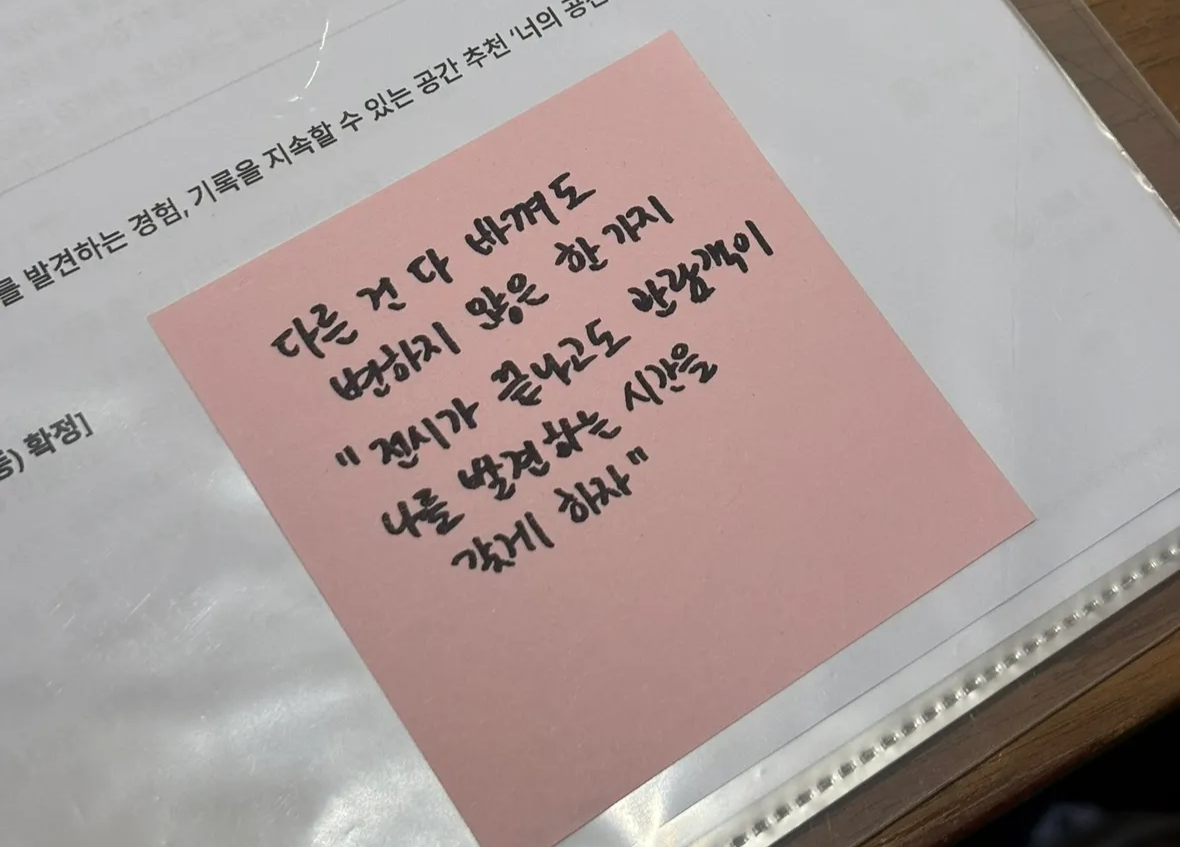 를 발견하는 경험, 기록을 지속할 수 있는 공간 추천 '너의 공간
다른 건 다 바껴도
변하지 않은 한 가지
"전시가 끝나고도 관람객이
나를 발견하는 시간을
갖게 하자"
동) 확정]